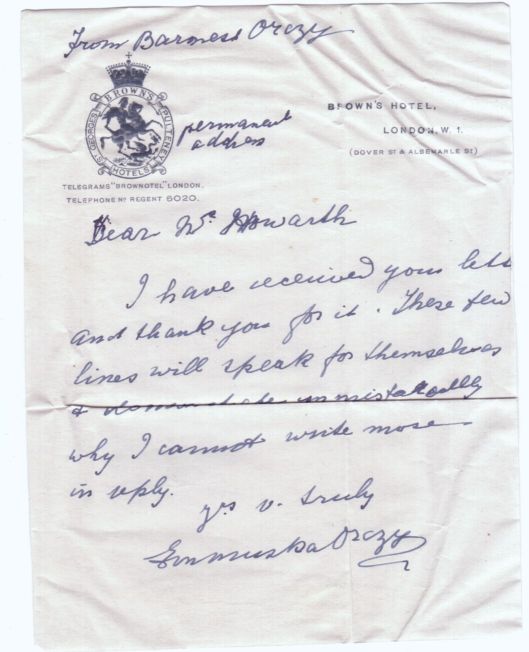 From Baroness Orczy
BROWN'S
ST GEORGES
PULTENEY
HOTELS
permanent
address
BROWN'S HOTEL,
LONDON, W. 1.
(DOVER ST & ALBEMARLE ST)
TELEGRAMS "BROWNOTEL" LONDON.
TELEPHONE No REGENT 6020.
Dear Mr Howarth
I have received your lett
and thank you for it. These few
lines will speak for themselves
& demonstrate unmistakably
why I cannot write more
in reply.
yrs v. truly
Emmuska Orczy